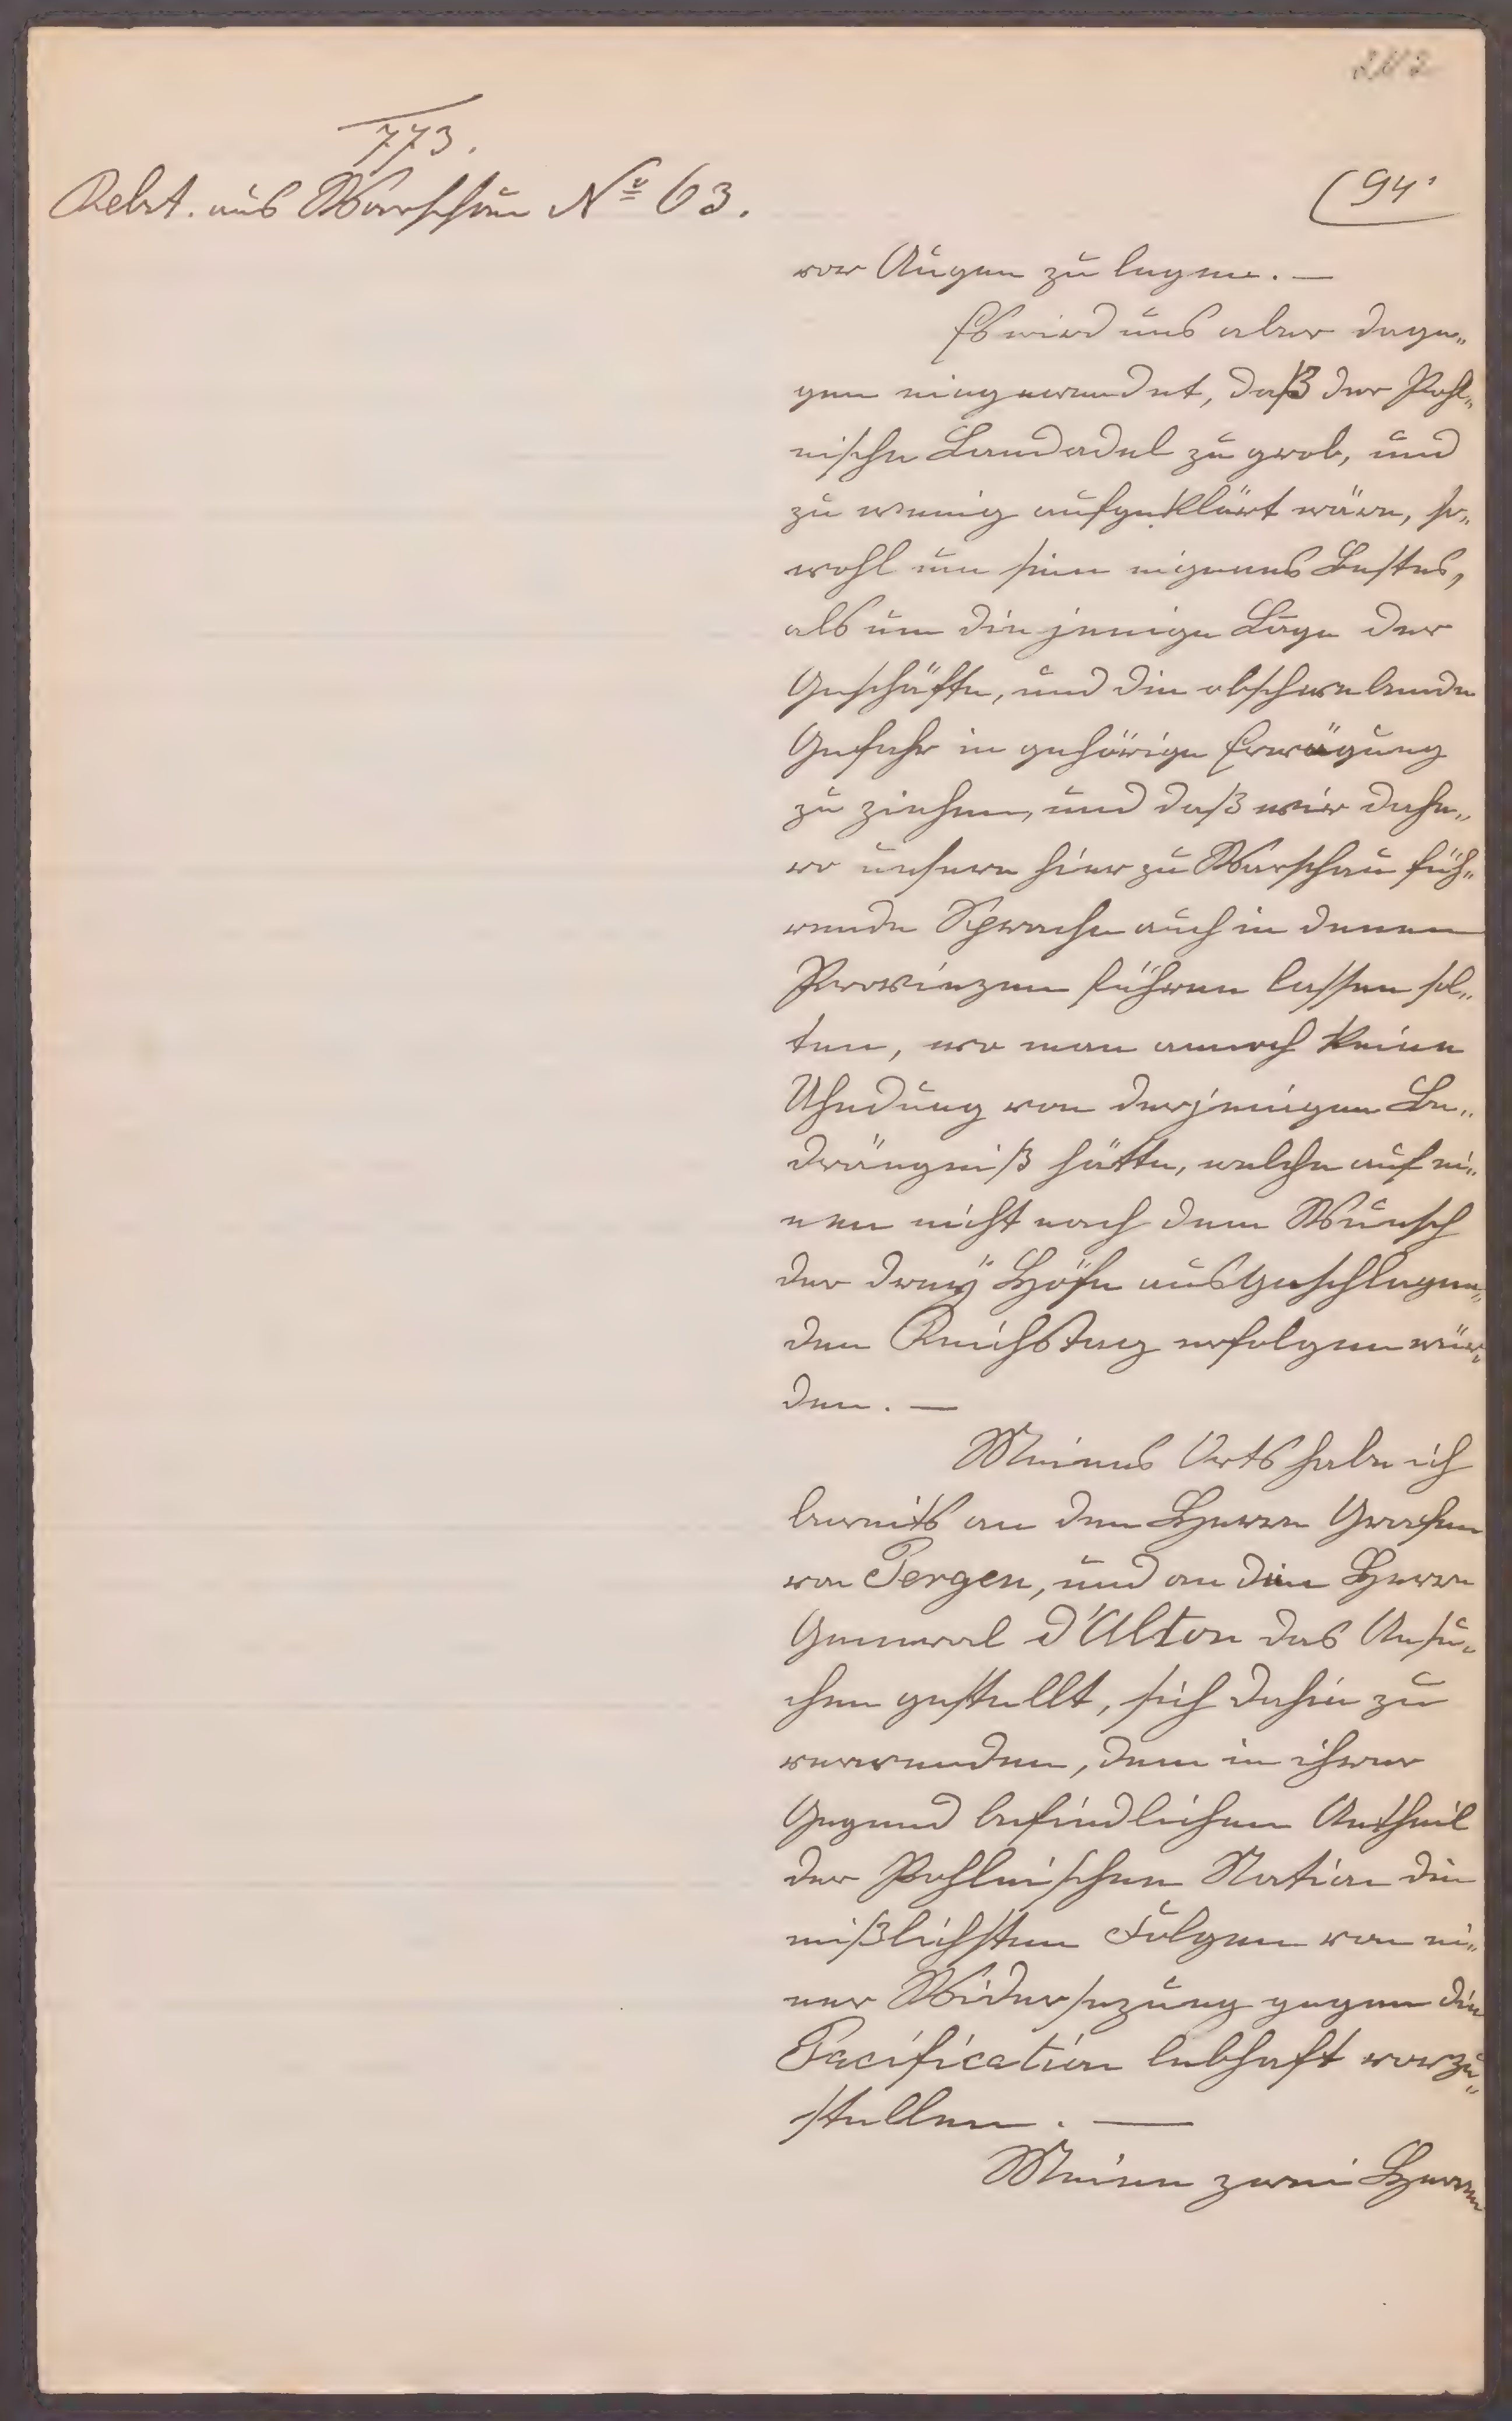 242
773.
Relat. aus Warschau No 63.
(94'
vor Augen zu legen. —
Es wird uns aber dage„
gen eingewendet, daß der Pohl„
nische Landadel zu grob, und
zu wenig aufgeklärt wäre, so„
wohl um sein eigenes Bestes,
als um die jenige Lage der
Geschäfte, und die obschwebende
Gefahr in gehörige Erwägung
zu ziehen, und daß wir dahe„
ro unsere hier zu Warschau füh„
rende Sprache auch in denen
Provinzen führen lassen sol„
ten, wo man annoch keine
Ahndung von derjenigen Be„
drängniß hätte, welche auf ei„
nen nicht nach dem Wunsch
der dreÿ Höfe ausgeschlagen„
den Reichstag erfolgen wür„
den. —
Meines Orts habe ich
bereits an den Herrn Grafen
von Pergen, und an den Herrn
General d'Alton das Ansu„
chen gestellt, sich dahin zu
verwenden, dem in ihrer
Gegend befindlichen Antheil
der Pohlnischen Nation die
mißlichsten Folgen von ei„
ner Widersezung gegen die
Pacification lebhaft vorzu„
stellen. —
Meine zwei Herren